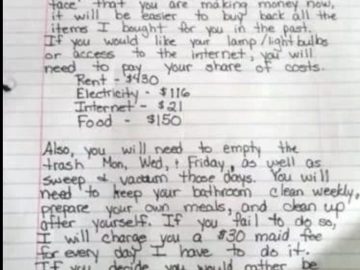 face" that you are making money now,
it will be easier to buy back all the
items I bought for you in the past.
If you would like your lamp/lightbulbs
or access to the internet, you will
need to pay your share of costs.
Rent - $430
Electricity - $116
Internet - $21
Food - $150
Also, you will need to empty the
trash Mon, Wed, + Friday, as well as
sweep + vacuum those days. You will
need to keep your bathroom clean weekly,
prepare your own meals, and clean up
after yourself. If you fail to do so,
I will charge you a $30 maid fee
for every day I have to do it.
If you decide you would rather be